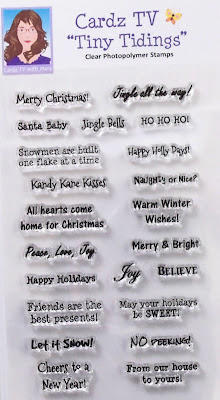 Cardz TV
"Tiny Tidings"
Clear Photopolymer Stamps
Cardz TV with Mary
Merry Christmas!
Jingle all the way!
Santa Baby
Jingle Bells
HO HO HO!
Snowmen are built
one flake at a time
Happy Holly Days!
Kandy Kane Kisses
Naughty or Nice?
All hearts come
home for Christmas
Warm Winter
Wishes!
Peace, Love, Joy
Merry & Bright
Happy Holidays
Joy
BELIEVE
Friends are the
best presents!
May your holidays
be SWEET!
Let it Snow!
NO PEEKING!
Cheers to a
New Year!
From our house
to yours!